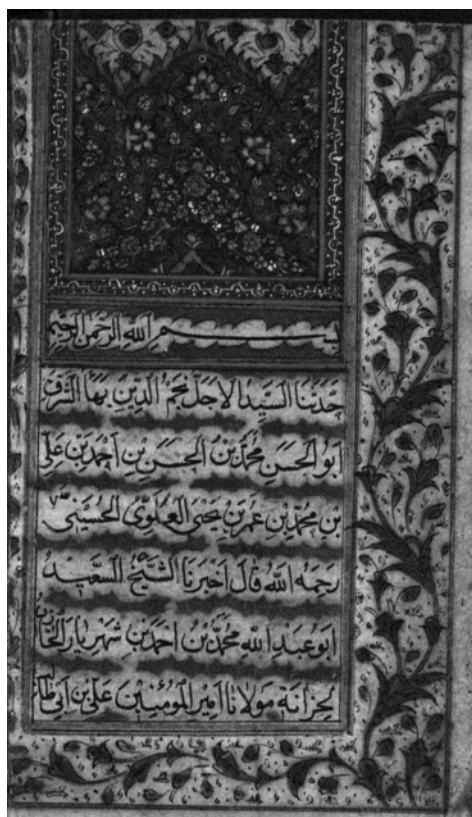 بِسْمِ اللهِ الرَّحْمٰنِ الرَّحِيْمِ
حَدَّثَنَا السَّيِّدُ الْاَجَلُّ نَجْمُ الدِّيْنِ بَهَآءُ الشَّرَفِ
اَبُو الْحَسَنِ مُحَمَّدُ بْنُ الْحَسَنِ بْنِ اَحْمَدَ بْنِ عَلِيِّ
بْنِ مُحَمَّدِ بْنِ عُمَرَ بْنِ يَحْيَى الْعَلَوِيُّ الْحُسَيْنِيُّ
رَحِمَهُ اللهُ قَالَ اَخْبَرَنَا الشَّيْخُ السَّعِيْدُ
اَبُو عَبْدِ اللهِ مُحَمَّدُ بْنُ اَحْمَدَ بْنِ شَهْرِيَارَ الْخَازِنُ
لِخِزَانَةِ مَوْلَانَا اَمِيْرِ الْمُؤْمِنِيْنَ عَلِيِّ بْنِ اَبِيْ طَالِبٍ